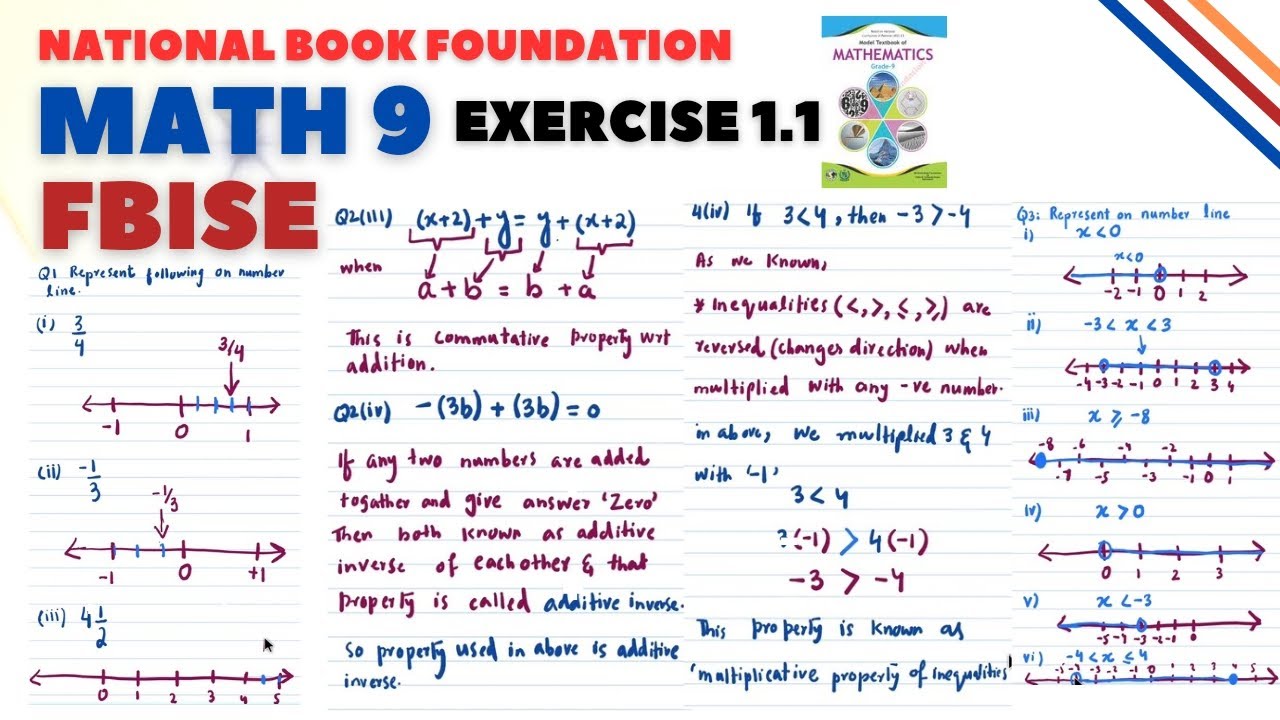 NATIONAL BOOK FOUNDATION
MATH 9 EXERCISE 1.1
FBISE
Model Textbook of
MATHEMATICS
Grade-9
Q1 Represent following on number
line.
(i) 3/4
3/4
-1 0 1
(ii) -1/3
-1/3
-1 0 +1
(iii) 4 1/2
0 1 2 3 4 5
Q2(iii) (x+2)+y=y+(x+2)
when
a+b = b+a
This is commutative property wrt
addition.
Q2(iv) -(3b)+(3b)=0
If any two numbers are added
togather and give answer 'Zero'
Then both known as additive
inverse of each other & that
property is called additive inverse.
So property used in above is additive
inverse.
4(iv) If 3<4, then -3>-4
As we known,
* Inequalities (<,>,≤,≥) are
reversed (changes direction) when
multiplied with any -ve number.
in above, we multiplied 3 & 4
with '-1'
3<4
(-1) > 4(-1)
-3 > -4
This property is known as
'multiplicative property of inequalities'
Q3: Represent on number line
i) x<0
x<0
-2 -1 0 1 2
ii) -3<x<3
-4 -3 -2 -1 0 1 2 3 4
iii) x≥-8
-8 -6 -4 -2
-7 -5 -3 -1 0 1
iv) x>0
0 1 2 3
v) x<-3
-5 -4 -3 -2 -1 0
vi) -4<x≤4
-3 -2 -1 0 1 2 3 4 5